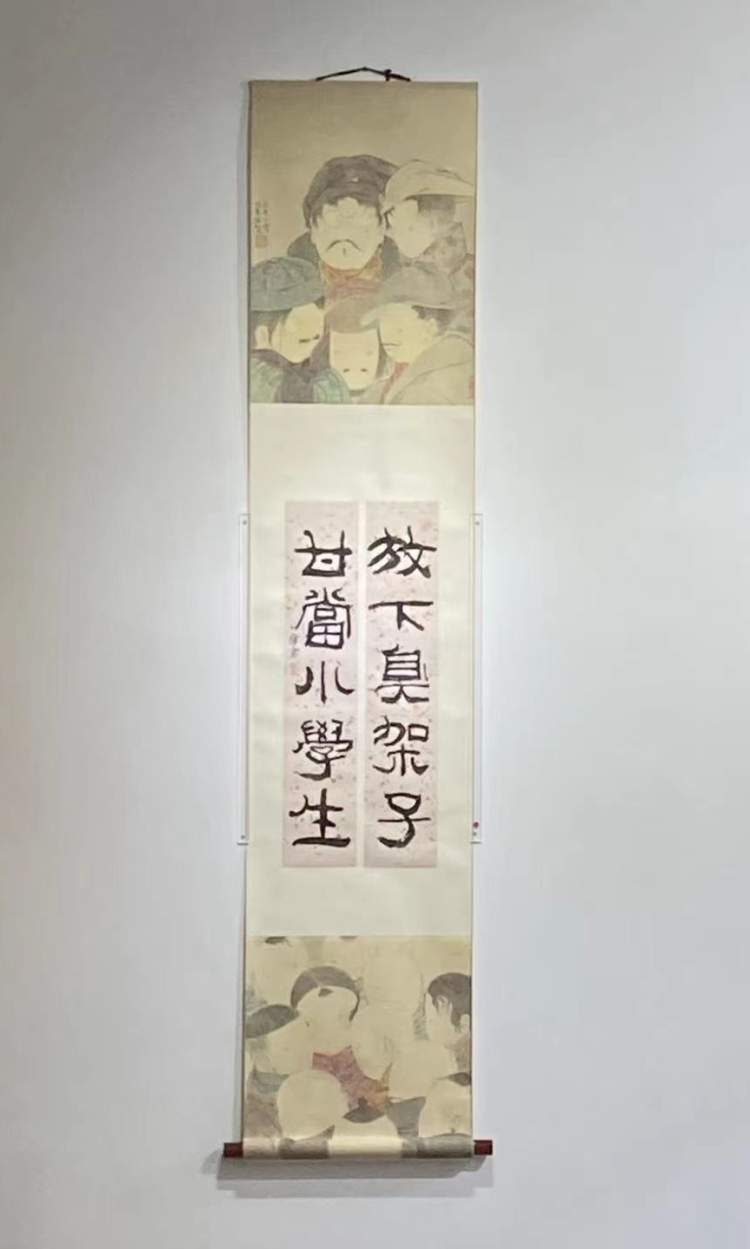 放下臭架子
甘當小學生